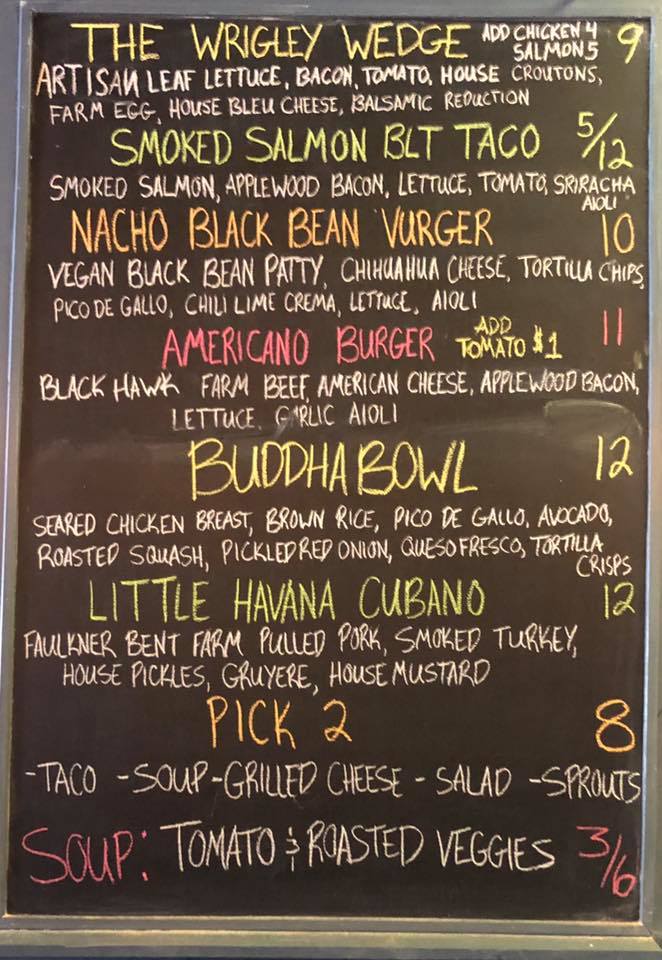 THE WRIGLEY WEDGE ADD CHICKEN 4 SALMON 5 9
ARTISAN LEAF LETTUCE, BACON, TOMATO, HOUSE CROUTONS,
FARM EGG, HOUSE BLEU CHEESE, BALSAMIC REDUCTION
SMOKED SALMON BLT TACO 5/12
SMOKED SALMON, APPLEWOOD BACON, LETTUCE, TOMATO, SRIRACHA
AIOLI
NACHO BLACK BEAN VURGER 10
VEGAN BLACK BEAN PATTY, CHIHUAHUA CHEESE, TORTILLA CHIPS,
PICO DE GALLO, CHILI LIME CREMA, LETTUCE, AIOLI
AMERICANO BURGER ADD TOMATO $1 11
BLACK HAWK FARM BEEF, AMERICAN CHEESE, APPLEWOOD BACON,
LETTUCE, GARLIC AIOLI
BUDDHA BOWL 12
SEARED CHICKEN BREAST, BROWN RICE, PICO DE GALLO, AVOCADO,
ROASTED SQUASH, PICKLED RED ONION, QUESO FRESCO, TORTILLA
CRISPS
LITTLE HAVANA CUBANO 12
FAULKNER BENT FARM PULLED PORK, SMOKED TURKEY,
HOUSE PICKLES, GRUYERE, HOUSE MUSTARD
PICK 2 8
-TACO -SOUP -GRILLED CHEESE - SALAD -SPROUTS
SOUP: TOMATO & ROASTED VEGGIES 3/6